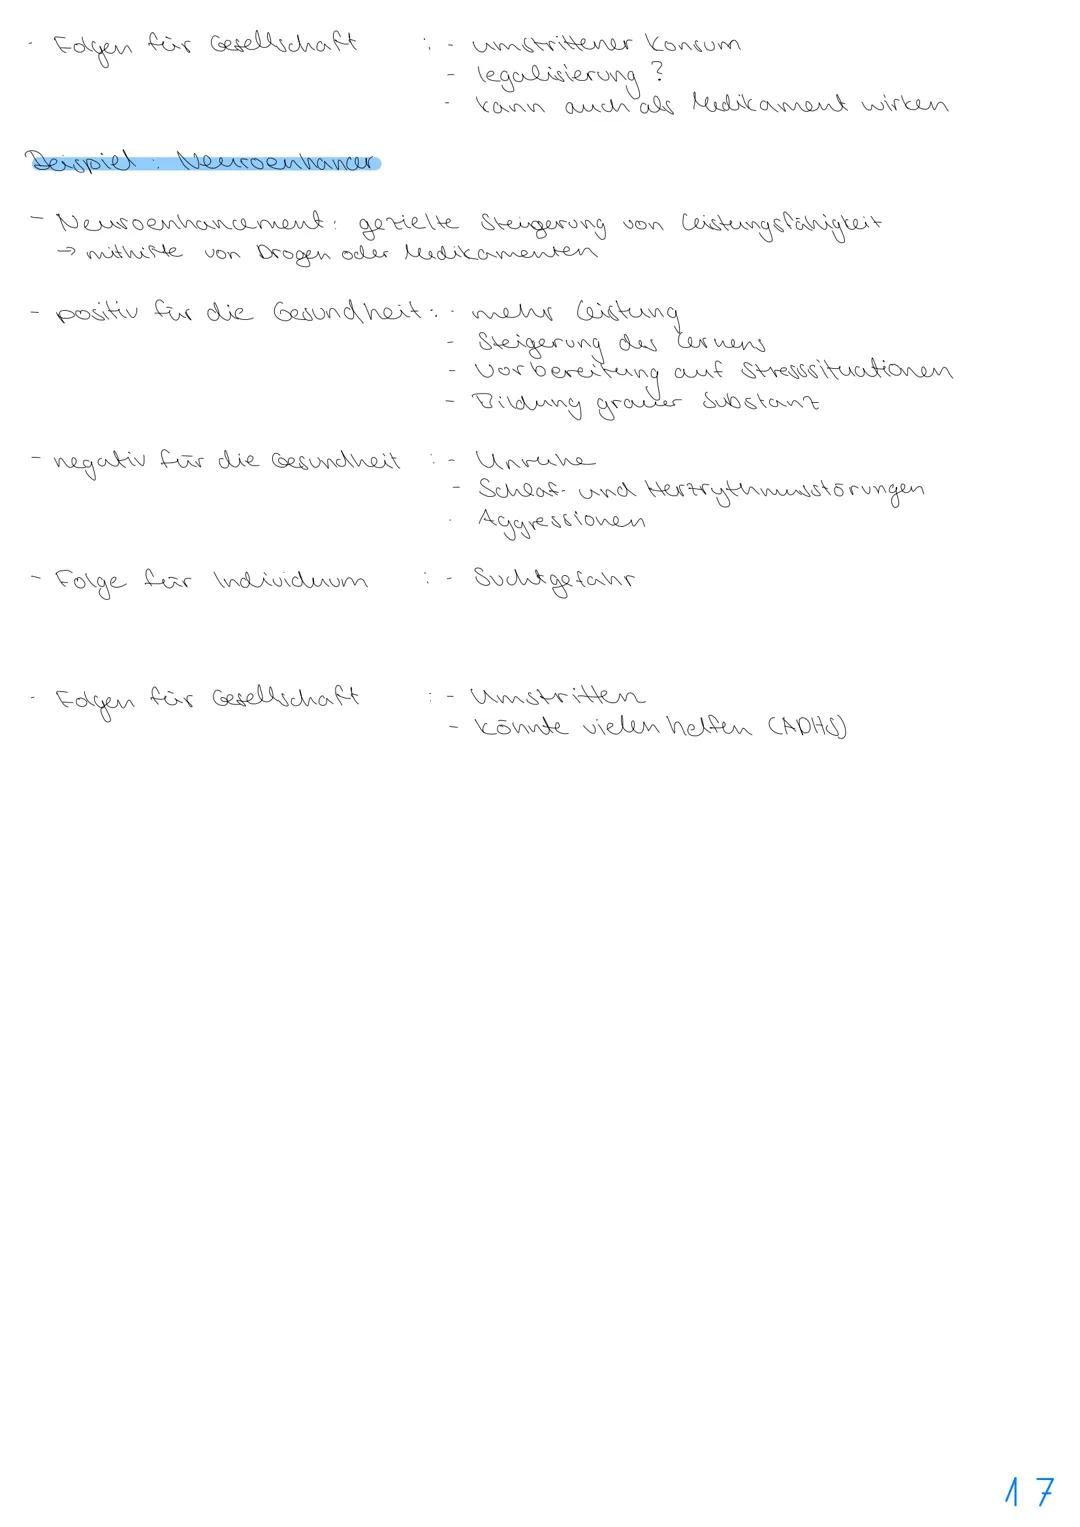 - Folgen für Gesellschaft : - umstrittener Konsum
- legalisierung ?
- kann auch als Medikament wirken
Beispiel : Neuroenhancer
- Neuroenhancement : gezielte Steigerung von Leistungsfähigkeit
→ mithilfe von Drogen oder Medikamenten
- positiv für die Gesundheit : - mehr Leistung
- Steigerung des Lernens
- Vorbereitung auf Stresssituationen
- Bildung grauer Substanz
- negativ für die Gesundheit : - Unruhe
- Schlaf- und Herzrythmusstörungen
- Aggressionen
- Folge für Individuum : - Suchtgefahr
- Folgen für Gesellschaft : - Umstritten
- könnte vielen helfen (ADHS)
17